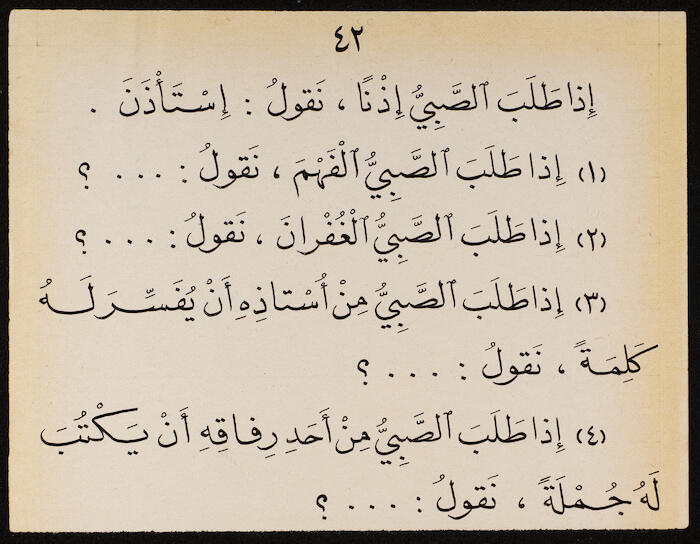 ٤٢
إِذا طَلَبَ ٱلصَّبِيُّ إِذْنًا ، نَقولُ : إِسْتَأْذَنَ .
(١) إِذا طَلَبَ ٱلصَّبِيُّ ٱلْفَهْمَ ، نَقولُ : . . . ؟
(٢) إِذا طَلَبَ ٱلصَّبِيُّ ٱلْغُفْرانَ ، نَقولُ : . . . ؟
(٣) إِذا طَلَبَ ٱلصَّبِيُّ مِنْ أُسْتاذِهِ أَنْ يُفَسِّرَ لَهُ
كَلِمَةً ، نَقولُ : . . . ؟
(٤) إِذا طَلَبَ ٱلصَّبِيُّ مِنْ أَحَدِ رِفاقِهِ أَنْ يَكْتُبَ
لَهُ جُمْلَةً ، نَقولُ : . . . ؟